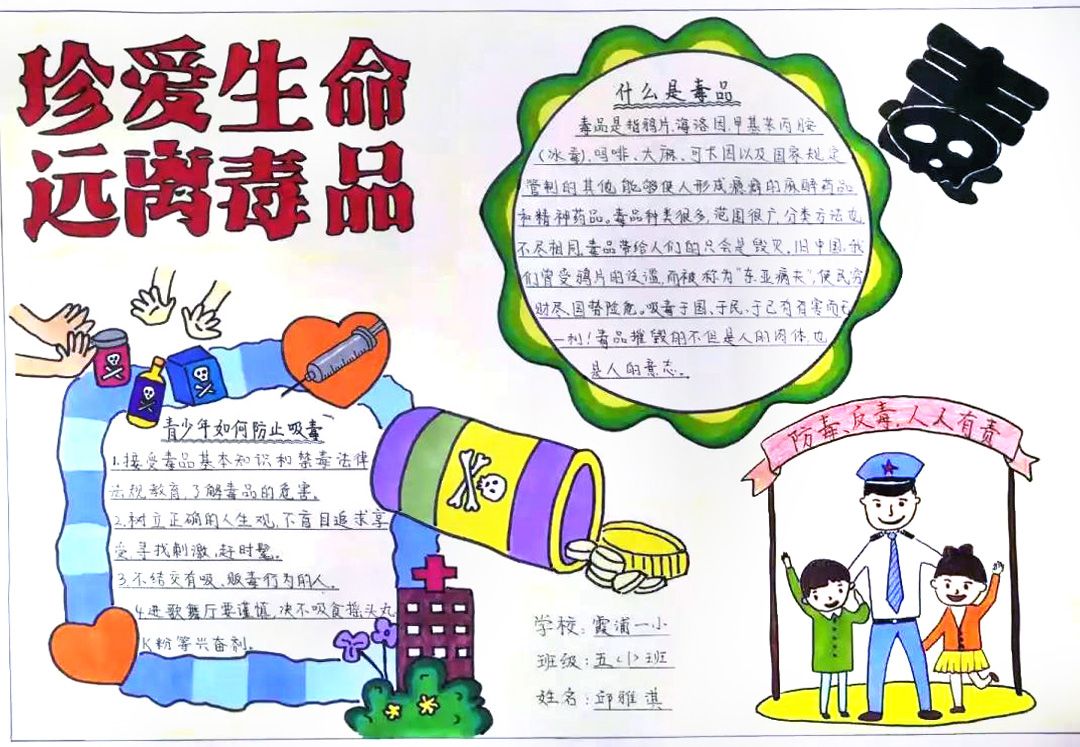 珍爱生命
远离毒品
什么是毒品
毒品是指鸦片,海洛因,甲基苯丙胺
(冰毒),吗啡、大麻、可卡因以及国家规定
管制的其他能够使人形成瘾癖的麻醉药品
和精神药品。毒品种类很多,范围很广,分类方法也
不尽相同,毒品带给人们的只会是毁灭。旧中国,我
们曾受鸦片的泛滥,而被称为"东亚病夫",使民穷
财尽、国势险危。吸毒于国、于民、于己有有害而无
一利!毒品摧毁的不但是人的肉体,也
是人的意志。
毒
青少年如何防止吸毒
1.接受毒品基本知识和禁毒法律
法规教育,了解毒品的危害。
2.树立正确的人生观,不盲目追求享
受,寻找刺激,赶时髦。
3.不结交有吸、贩毒行为的人。
4.进歌舞厅要谨慎,决不吸食摇头丸
K粉等兴奋剂。
防毒,反毒,人人有责
学校:霞浦一小
班级:五(1)班
姓名:邱雅淇